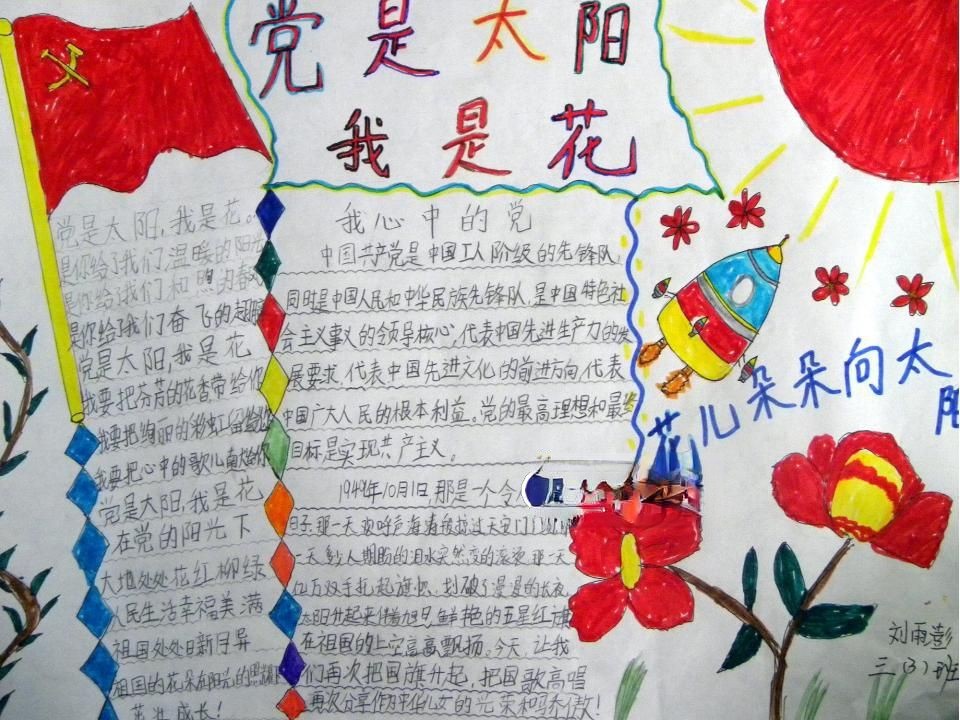 党是太阳
我是花
党是太阳,我是花。
是你给了我们温暖的阳光
是你给我们和煦的春
是你给了我们奋飞的翅膀
党是太阳,我是花
我要把芬芳的花香带给你
我要把绚丽的彩虹留给你
我要把心中的歌儿献给你
党是太阳,我是花
在党的阳光下
大地处处花红柳绿
人民生活幸福美满
祖国处处日新月异
祖国的花朵在阳光的照耀下
茁壮成长!
我心中的党
中国共产党是中国工人阶级的先锋队,
同时是中国人民和中华民族先锋队,是中国特色社
会主义事义的领导核心,代表中国先进生产力的发
展要求,代表中国先进文化的前进方向,代表
中国广大人民的根本利益。党的最高理想和最终
目标是实现共产主义。
1949年10月1日,那是一个令人
日子,那一天,欢呼声海涛般掠过天安门
一天,多少人期盼的泪水突然变的滚烫,那一天
亿万双手扎起旗帜,划破了漫漫的长夜,
太阳升起来伴着旭日,鲜艳的五星红旗
在祖国的上空高高飘扬。今天,让我
们再次把国旗升起,把国歌高唱
再次分享作为中华儿女的光荣和骄傲!
花儿朵朵向太阳
刘雨澎
三(3)班